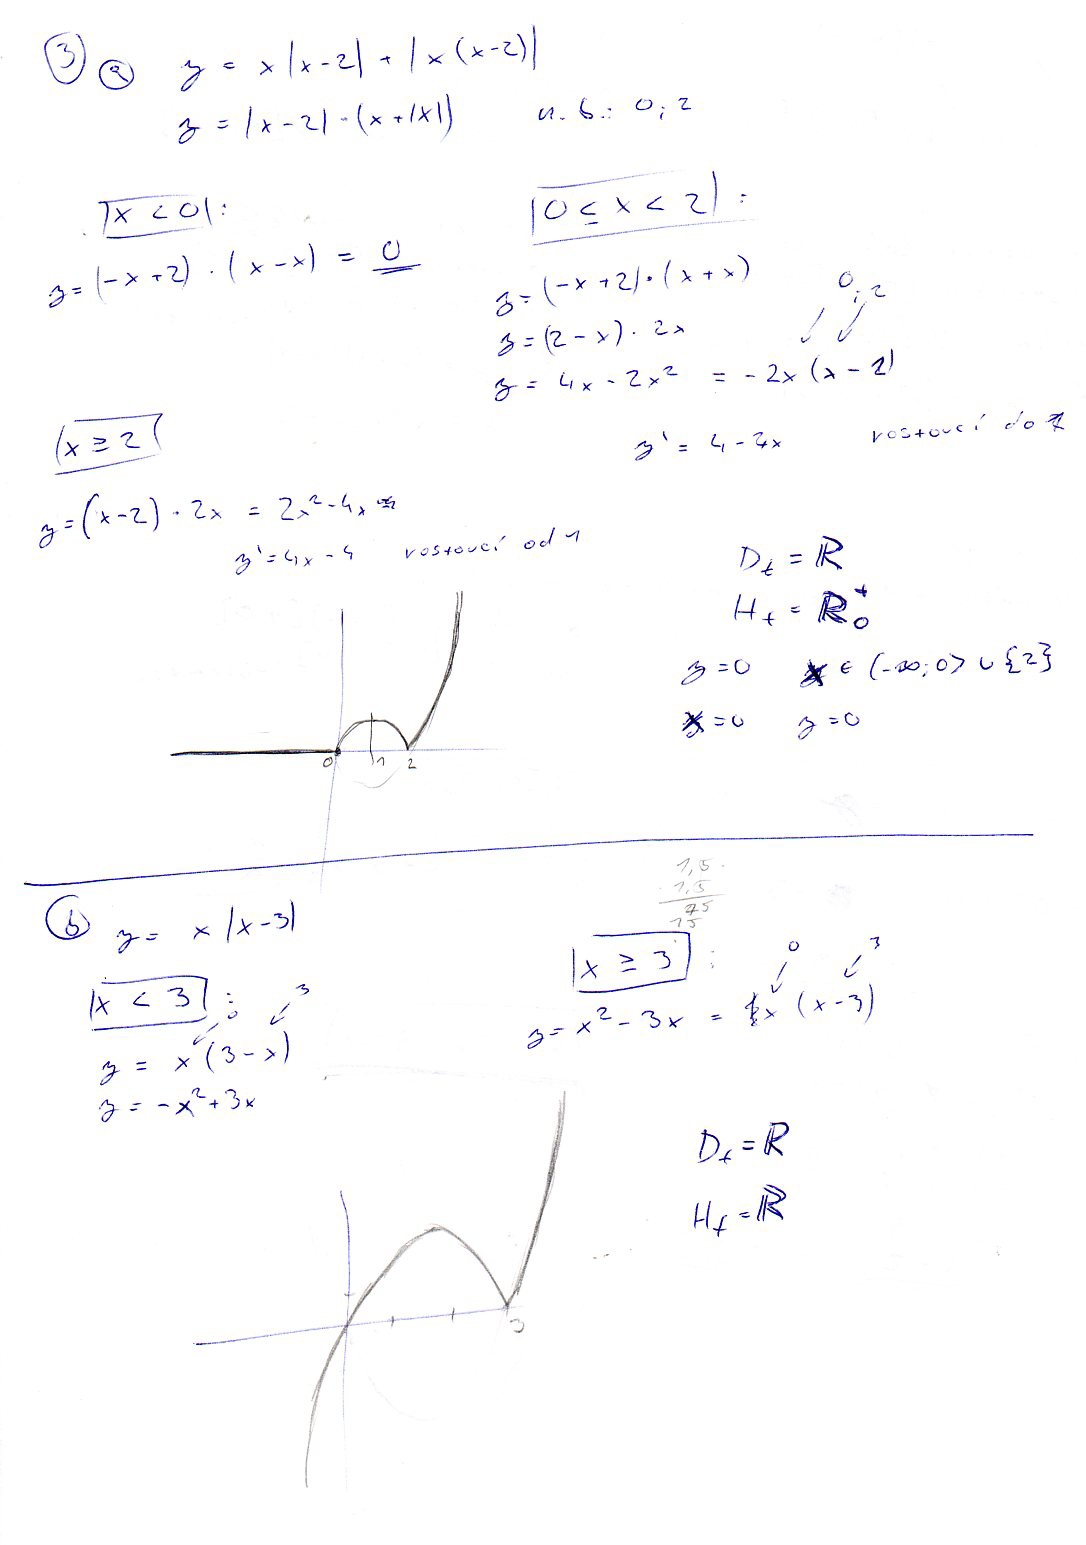 3 a y = x|x-2| + |x(x-2)|
y = |x-2| · (x+|x|) n. b.: 0; 2
x < 0 :
y = (-x+2) · (x-x) = 0
0 ≤ x < 2 :
y = (-x+2) · (x+x)
0; 2
y = (2-x) · 2x
y = 4x - 2x² = -2x (x-2)
y' = 4 - 4x rostoucí do 1
x ≥ 2
y = (x-2) · 2x = 2x² - 4x
y' = 4x - 4 rostoucí od 1
D_f = ℝ
H_f = ℝ₀⁺
y = 0 x ∈ (-∞; 0> ∪ {2}
x = 0 y = 0
0 1 2
1,5
· 1,5
75
15
b y = x|x-3|
x < 3 :
0 3
y = x (3-x)
y = -x² + 3x
x ≥ 3 :
0 3
y = x² - 3x = x (x-3)
D_f = ℝ
H_f = ℝ
3